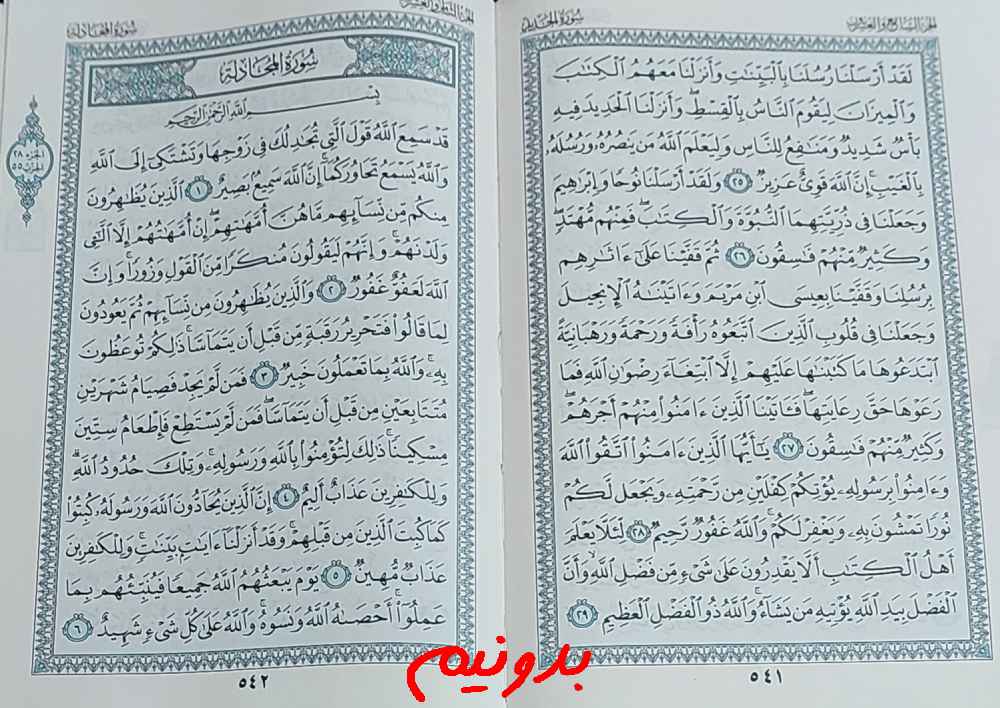 الجزء السابع والعشرون
سورة الحديد
لَقَدْ أَرْسَلْنَا رُسُلَنَا بِالْبَيِّنَٰتِ وَأَنزَلْنَا مَعَهُمُ الْكِتَٰبَ
وَالْمِيزَانَ لِيَقُومَ النَّاسُ بِالْقِسْطِ ۖ وَأَنزَلْنَا الْحَدِيدَ فِيهِ
بَأْسٌ شَدِيدٌ وَمَنَٰفِعُ لِلنَّاسِ وَلِيَعْلَمَ اللَّهُ مَن يَنصُرُهُ وَرُسُلَهُ
بِالْغَيْبِ ۚ إِنَّ اللَّهَ قَوِيٌّ عَزِيزٌ ٢٥ وَلَقَدْ أَرْسَلْنَا نُوحًا وَإِبْرَٰهِيمَ
وَجَعَلْنَا فِي ذُرِّيَّتِهِمَا النُّبُوَّةَ وَالْكِتَٰبَ ۖ فَمِنْهُم مُّهْتَدٍ ۖ
وَكَثِيرٌ مِّنْهُمْ فَٰسِقُونَ ٢٦ ثُمَّ قَفَّيْنَا عَلَىٰ ءَاثَٰرِهِم
بِرُسُلِنَا وَقَفَّيْنَا بِعِيسَى ابْنِ مَرْيَمَ وَءَاتَيْنَٰهُ الْإِنجِيلَ
وَجَعَلْنَا فِي قُلُوبِ الَّذِينَ اتَّبَعُوهُ رَأْفَةً وَرَحْمَةً وَرَهْبَانِيَّةً
ابْتَدَعُوهَا مَا كَتَبْنَٰهَا عَلَيْهِمْ إِلَّا ابْتِغَاءَ رِضْوَٰنِ اللَّهِ فَمَا
رَعَوْهَا حَقَّ رِعَايَتِهَا ۖ فَـَٔاتَيْنَا الَّذِينَ ءَامَنُوا مِنْهُمْ أَجْرَهُمْ ۖ
وَكَثِيرٌ مِّنْهُمْ فَٰسِقُونَ ٢٧ يَٰٓأَيُّهَا الَّذِينَ ءَامَنُوا اتَّقُوا اللَّهَ
وَءَامِنُوا بِرَسُولِهِ يُؤْتِكُمْ كِفْلَيْنِ مِن رَّحْمَتِهِ وَيَجْعَل لَّكُمْ
نُورًا تَمْشُونَ بِهِ وَيَغْفِرْ لَكُمْ ۚ وَاللَّهُ غَفُورٌ رَّحِيمٌ ٢٨ لِّئَلَّا يَعْلَمَ
أَهْلُ الْكِتَٰبِ أَلَّا يَقْدِرُونَ عَلَىٰ شَيْءٍ مِّن فَضْلِ اللَّهِ ۙ وَأَنَّ
الْفَضْلَ بِيَدِ اللَّهِ يُؤْتِيهِ مَن يَشَاءُ ۚ وَاللَّهُ ذُو الْفَضْلِ الْعَظِيمِ ٢٩
٥٤١
الجزء الثامن والعشرون
سورة المجادلة
سُورَةُ المُجَادلَة
بِسْمِ اللَّهِ الرَّحْمَٰنِ الرَّحِيمِ
قَدْ سَمِعَ اللَّهُ قَوْلَ الَّتِي تُجَٰدِلُكَ فِي زَوْجِهَا وَتَشْتَكِي إِلَى اللَّهِ
وَاللَّهُ يَسْمَعُ تَحَاوُرَكُمَا ۚ إِنَّ اللَّهَ سَمِيعٌ بَصِيرٌ ١ الَّذِينَ يُظَٰهِرُونَ
مِنكُم مِّن نِّسَائِهِم مَّا هُنَّ أُمَّهَٰتِهِمْ ۖ إِنْ أُمَّهَٰتُهُمْ إِلَّا الَّٰٓـِٔي
وَلَدْنَهُمْ ۚ وَإِنَّهُمْ لَيَقُولُونَ مُنكَرًا مِّنَ الْقَوْلِ وَزُورًا ۚ وَإِنَّ
اللَّهَ لَعَفُوٌّ غَفُورٌ ٢ وَالَّذِينَ يُظَٰهِرُونَ مِن نِّسَائِهِمْ ثُمَّ يَعُودُونَ
لِمَا قَالُوا فَتَحْرِيرُ رَقَبَةٍ مِّن قَبْلِ أَن يَتَمَاسَّا ۚ ذَٰلِكُمْ تُوعَظُونَ
بِهِ ۚ وَاللَّهُ بِمَا تَعْمَلُونَ خَبِيرٌ ٣ فَمَن لَّمْ يَجِدْ فَصِيَامُ شَهْرَيْنِ
مُتَتَابِعَيْنِ مِن قَبْلِ أَن يَتَمَاسَّا ۖ فَمَن لَّمْ يَسْتَطِعْ فَإِطْعَامُ سِتِّينَ
مِسْكِينًا ۚ ذَٰلِكَ لِتُؤْمِنُوا بِاللَّهِ وَرَسُولِهِ ۚ وَتِلْكَ حُدُودُ اللَّهِ ۗ
وَلِلْكَٰفِرِينَ عَذَابٌ أَلِيمٌ ٤ إِنَّ الَّذِينَ يُحَادُّونَ اللَّهَ وَرَسُولَهُ كُبِتُوا
كَمَا كُبِتَ الَّذِينَ مِن قَبْلِهِمْ ۚ وَقَدْ أَنزَلْنَا ءَايَٰتٍ بَيِّنَٰتٍ ۚ وَلِلْكَٰفِرِينَ
عَذَابٌ مُّهِينٌ ٥ يَوْمَ يَبْعَثُهُمُ اللَّهُ جَمِيعًا فَيُنَبِّئُهُم بِمَا
عَمِلُوا ۚ أَحْصَىٰهُ اللَّهُ وَنَسُوهُ ۚ وَاللَّهُ عَلَىٰ كُلِّ شَيْءٍ شَهِيدٌ ٦
الجزء ٢٨
الحزب ٥٥
٥٤٢
بدونیم